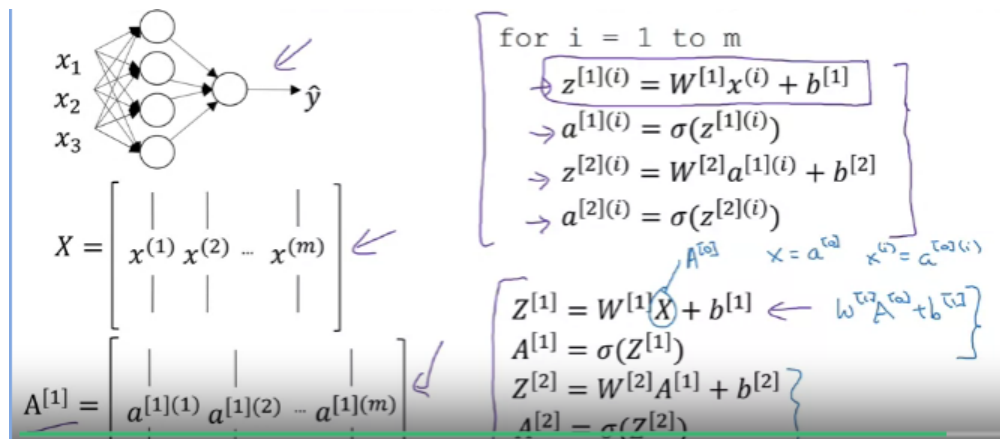 x₁
x₂
x₃
ŷ
X = [ x⁽¹⁾ x⁽²⁾ ... x⁽ᵐ⁾ ]
A[1] = [ a[1](1) a[1](2) ... a[1](m) ]
for i = 1 to m
z[1](i) = W[1]x(i) + b[1]
a[1](i) = σ(z[1](i))
z[2](i) = W[2]a[1](i) + b[2]
a[2](i) = σ(z[2](i))
A[0] x = a[0] x(i) = a[0](i)
Z[1] = W[1]X + b[1] W[1]A[0] + b[1]
A[1] = σ(Z[1])
Z[2] = W[2]A[1] + b[2]
A[2] = σ(Z[2])